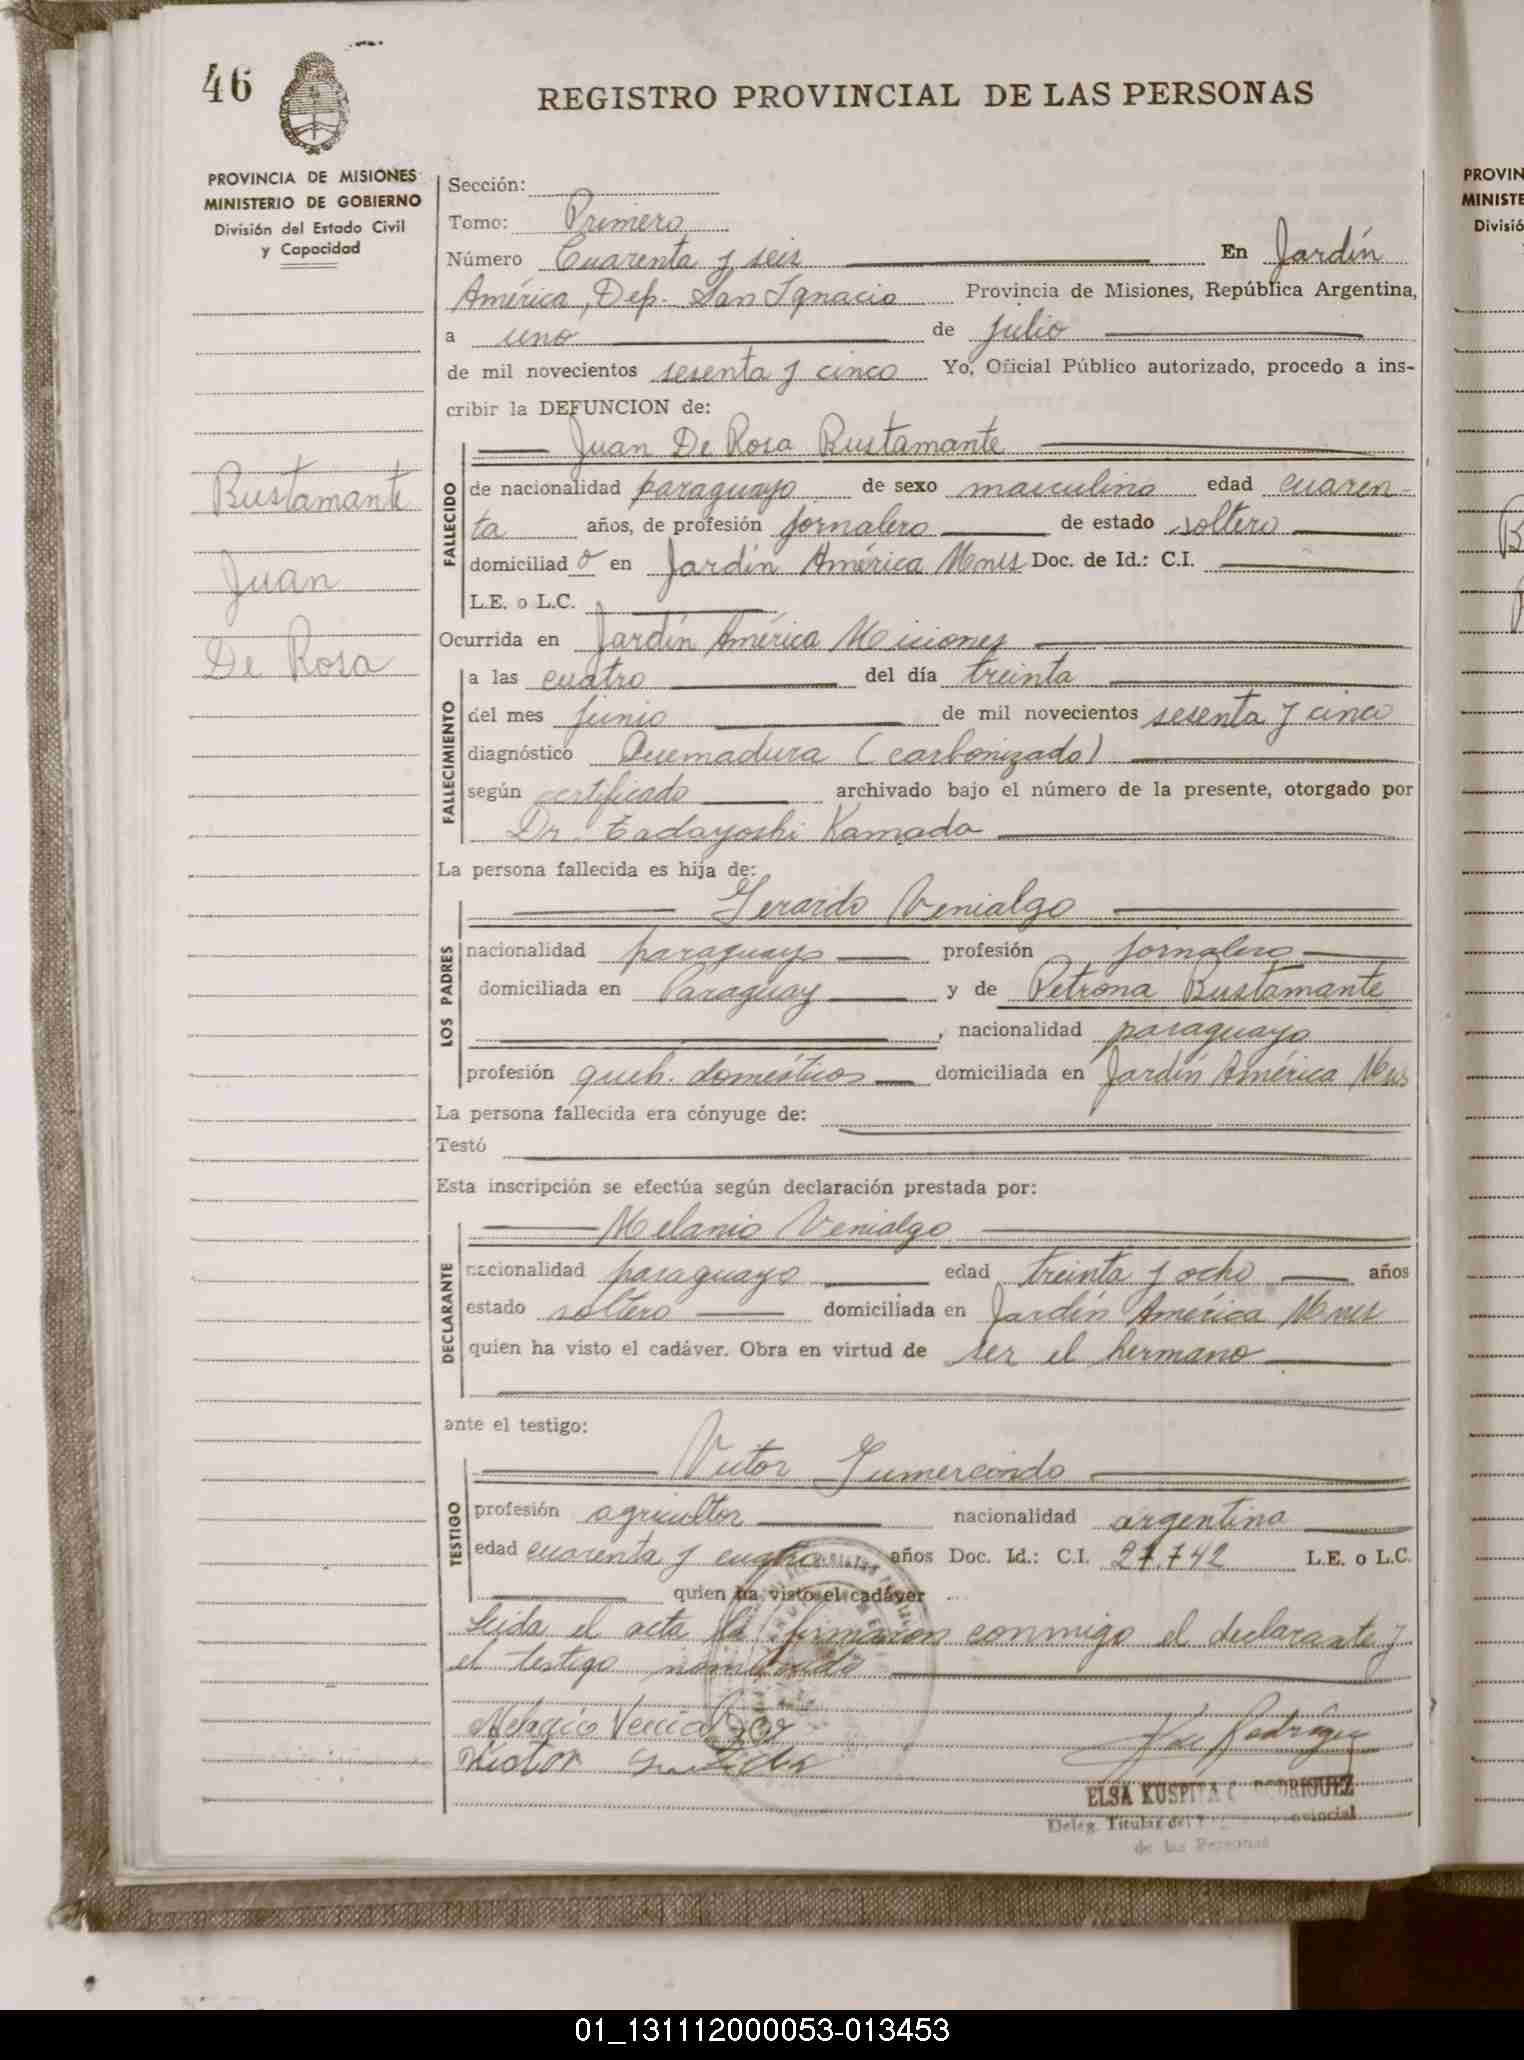 46
REGISTRO PROVINCIAL DE LAS PERSONAS
PROVINCIA DE MISIONES
MINISTERIO DE GOBIERNO
División del Estado Civil
y Capacidad
Bustamante
Juan
De Rosa
Sección:
Tomo: Primero
Número Cuarenta y seis En Jardín
América, Dep. San Ignacio Provincia de Misiones, República Argentina,
a uno de julio
de mil novecientos sesenta y cinco Yo, Oficial Público autorizado, procedo a ins-
cribir la DEFUNCION de:
Juan De Rosa Bustamante
FALLECIDO
de nacionalidad paraguayo de sexo masculino edad cuaren-
ta años, de profesión jornalero de estado soltero
domiciliado en Jardín América Mnes Doc. de Id.: C.I.
L.E. o L.C.
Ocurrida en Jardín América Miciones
FALLECIMIENTO
a las cuatro del día treinta
del mes junio de mil novecientos sesenta y cinco
diagnóstico Quemadura (carbonizado)
según certificado archivado bajo el número de la presente, otorgado por
Dr. Tadayoshi Kamada
La persona fallecida es hija de:
Gerardo Venialgo
LOS PADRES
nacionalidad paraguayo profesión jornalero
domiciliada en Paraguay y de Petrona Bustamante
, nacionalidad paraguaya
profesión queh. domésticos domiciliada en Jardín América Mnes
La persona fallecida era cónyuge de:
Testó
Esta inscripción se efectúa según declaración prestada por:
Melanio Venialgo
DECLARANTE
nacionalidad paraguayo edad treinta y ocho años
estado soltero domiciliada en Jardín América Mnes
quien ha visto el cadáver. Obra en virtud de ser el hermano
ante el testigo:
Victor Gumercindo
TESTIGO
profesión agricultor nacionalidad argentina
edad cuarenta y cuatro años Doc. Id.: C.I. 27.742 L.E. o L.C.
quien ha visto el cadáver
Leida el acta la firmaron conmigo el declarante y
el testigo nombrado
Melanio Venialgo
Victor
ELSA KUSPITA RODRIGUEZ
Deleg. Titular del Provincial
de las Personas
PROVIN
MINISTE
Divisió
01_131112000053-013453